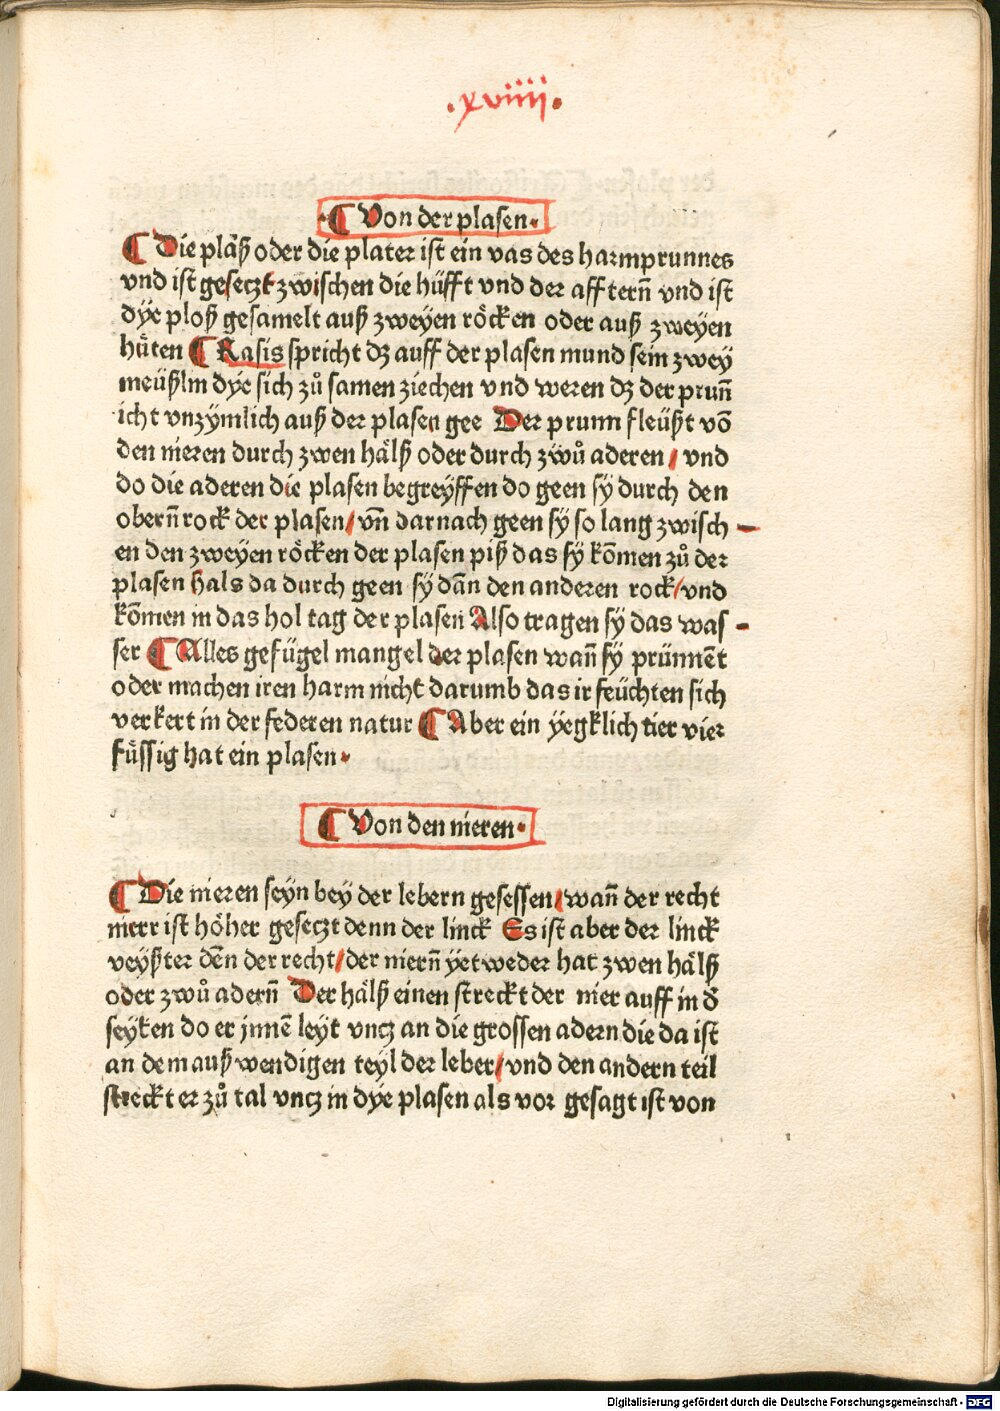 .xviiii.
¶ Von der plasen.
¶ Die plåß oder die plater ist ein vas des harmprunnes
vnd ist gesetzt zwischen die hüfft vnd der affterñ vnd ist
dÿe ploß gesamelt auß zweÿen röcken oder auß zweÿen
hüten ¶ Rasis spricht dz auff der plasen mund sein zweÿ
meüßlin dÿe sich zů samen ziechen vnd weren dz der prun̄
icht vnzÿmlich auß der plasen gee Der prunn fleüßt vō
den nieren durch zwen hälß oder durch zwů aderen / vnd
do die aderen die plasen begreÿffen do geen sÿ durch den
oberñ rock der plasen / vñ darnach geen sÿ so lang zwisch -
en den zweÿen röcken der plasen piß das sÿ kōmen zů der
plasen hals da durch geen sÿ dān den anderen rock / vnd
kōmen in das hol tag der plasen Also tragen sÿ das was -
ser ¶ Alles gefügel mangel der plasen wañ sÿ prünnēt
oder machen iren harm nicht darumb das ir feüchten sich
verkert in der federen natur ¶ Aber ein ÿegklich tier vier
füssig hat ein plasen.
¶ Von den nieren.
¶ Die nieren seÿn beÿ der lebern gesessen / wañ der recht
nierr ist höher gesetzt denn der linck Es ist aber der linck
veÿßter dēn der recht / der nierñ ÿetweder hat zwen hälß
oder zwů aderñ Der hälß einen streckt der nier auff in d̕
seÿten do er jnnē leÿt vntz an die grossen adern die da ist
an dem außwendigen teÿl der leber / vnd den andern teil
streckt er zů tal vntz in dÿe plasen als vor gesagt ist von
Digitalisierung gefördert durch die Deutsche Forschungsgemeinschaft - DFG